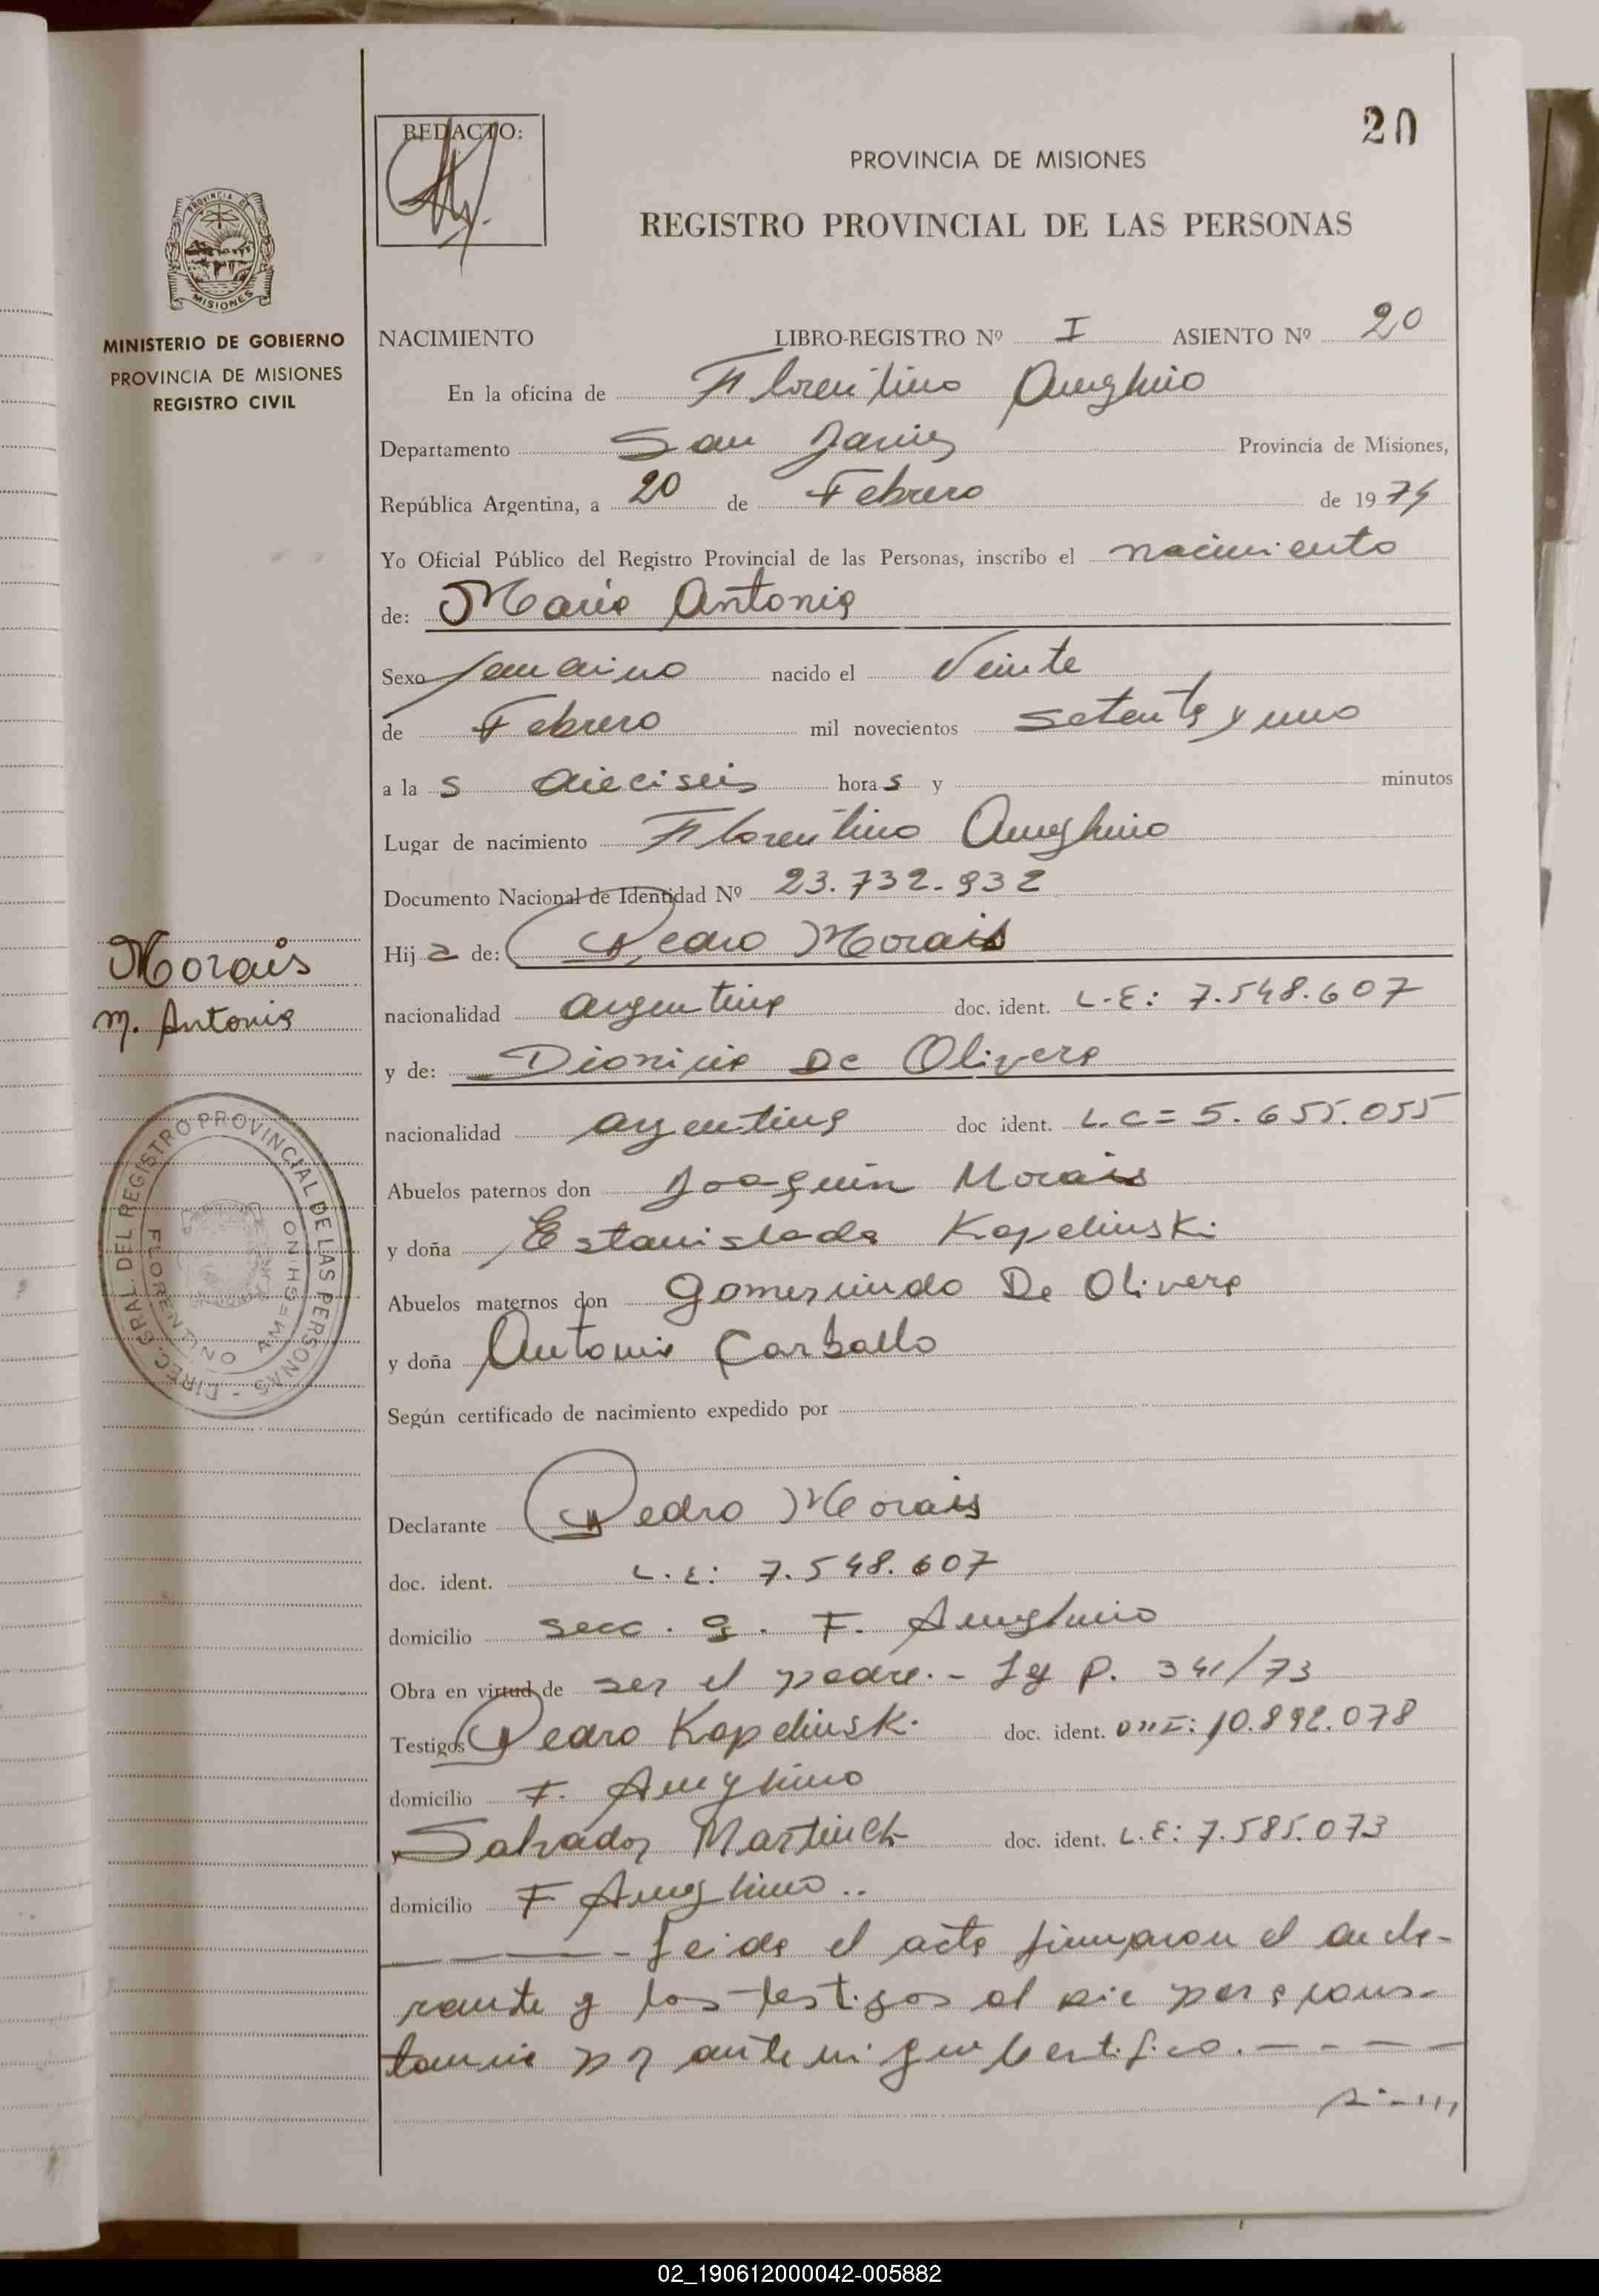 20
REDACTO:
PROVINCIA DE MISIONES
REGISTRO PROVINCIAL DE LAS PERSONAS
PROVINCIA DE
MISIONES
MINISTERIO DE GOBIERNO
PROVINCIA DE MISIONES
REGISTRO CIVIL
NACIMIENTO LIBRO-REGISTRO Nº I ASIENTO Nº 20
En la oficina de Florentino Ameghino
Departamento San Javier Provincia de Misiones,
República Argentina, a 20 de Febrero de 1974
Yo Oficial Público del Registro Provincial de las Personas, inscribo el nacimiento
de: Maria Antonia
Sexo femenino nacido el Veinte
de Febrero mil novecientos setenta y uno
a las dieciseis horas y minutos
Lugar de nacimiento Florentino Ameghino
Documento Nacional de Identidad Nº 23.732.932
Hija de: Pedro Morais
nacionalidad argentina doc. ident. L.E: 7.548.607
y de: Dionicia De Olivera
nacionalidad argentina doc ident. L.C= 5.655.055
Abuelos paternos don Joaquin Morais
y doña Estanislada Kopelinski
Abuelos maternos don Gomersindo De Olivera
y doña Antonia Carballo
Según certificado de nacimiento expedido por
Declarante Pedro Morais
doc. ident. L.E: 7.548.607
domicilio secc. 9. F. Ameghino
Obra en virtud de ser el padre.- Ley P. 341/73
Testigos Pedro Kopelinski doc. ident. DNI: 10.892.078
domicilio F. Ameghino
Salvador Martinch doc. ident. L.E: 7.585.073
domicilio F Ameghino..
Leida el acta firmaron el decla-
rante y los testigos al pie para cons-
tancia por ante mi que Certifico.
Morais
M. Antonia
DIREC. GRAL DEL REGISTRO PROVINCIAL DE LAS PERSONAS -
FLORENTINO AMEGHINO
02_190612000042-005882